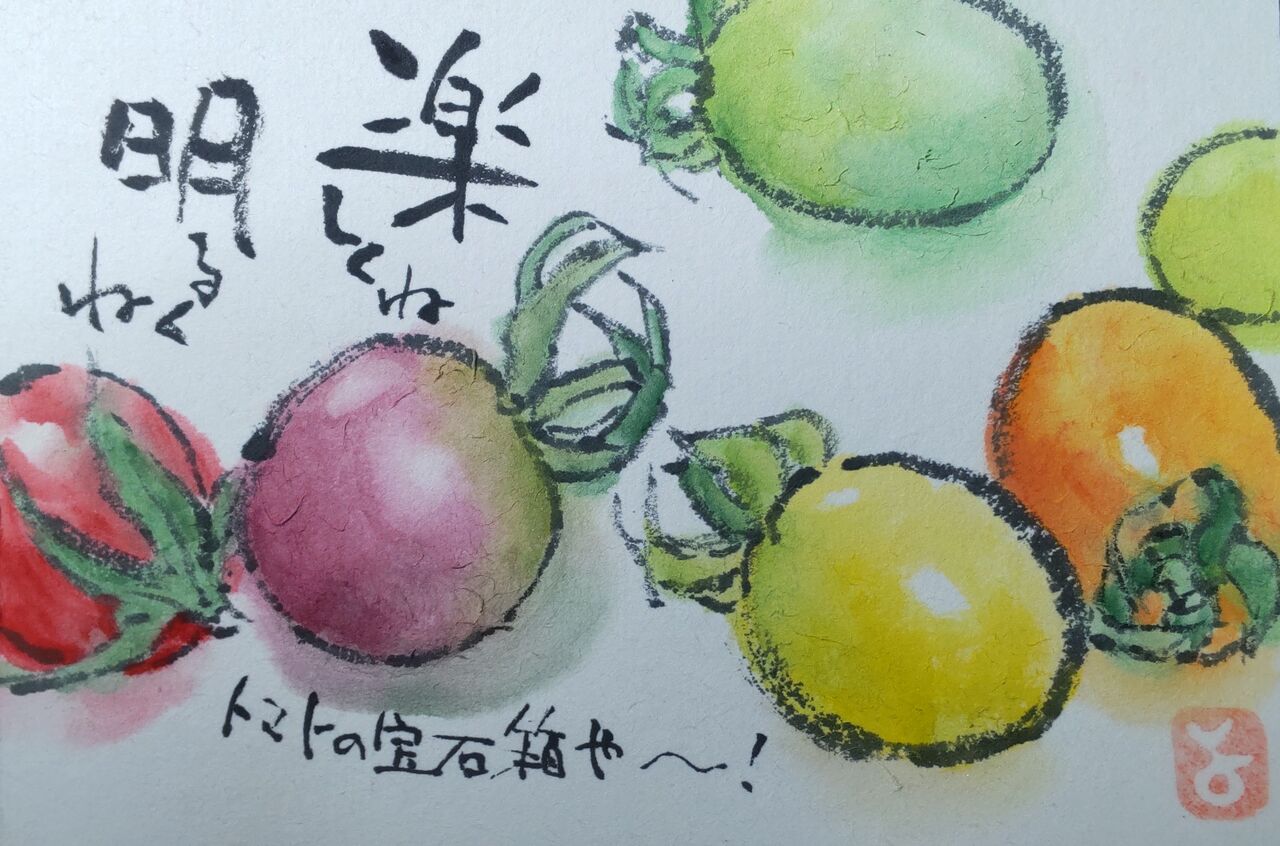 楽しくね
明るくね
トマトの宝石箱や〜!